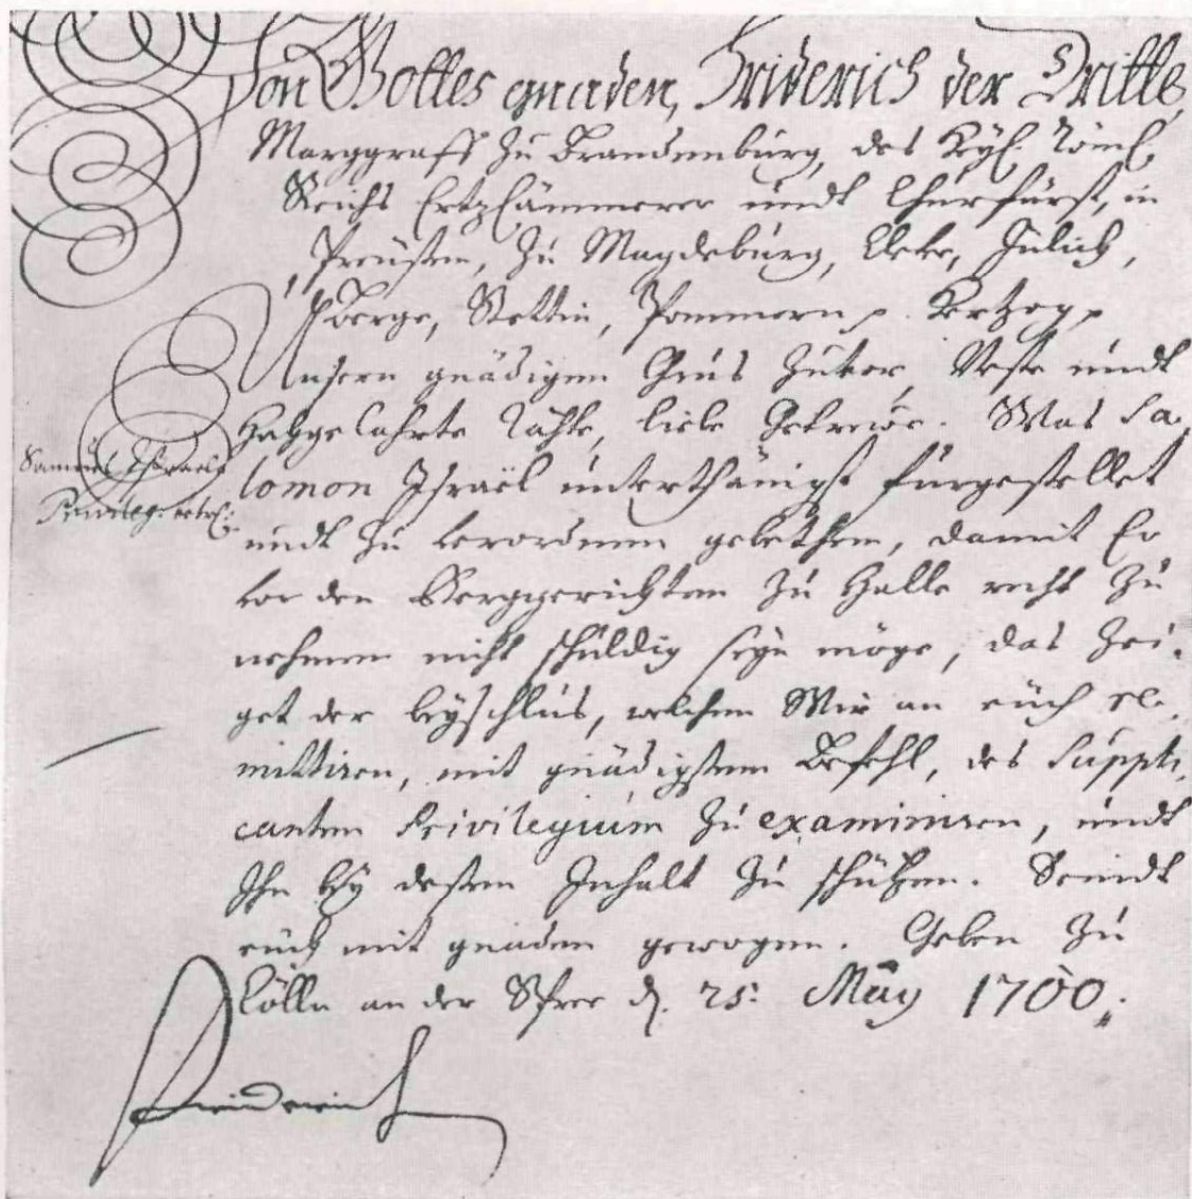 Von Gottes gnaden, Friderich der Dritte,
Marggraff zu Brandenburg, des Heyl. Röm.
Reichs Ertzcämmerer undt Churfürst, in
Preüßen, zu Magdeburg, Cleve, Jülich,
Berge, Stettin, Pommern p. Hertzog p
Unsern gnädigen Grus zuvor, Veste undt
Hochgelahrte Räthe, liebe Getrewe. Was Sa-
lomon Israël unterthänigst fürgestellet
undt zu verordnen gebethen, damit Er
vor den Berggerichten zu Halle recht zu
nehmen nicht schuldig seyn möge, das zei-
get der beyschlus, welchen Wir an eüch re-
mittiren, mit gnädigstem Befehl, des Suppli-
canten Privilegium zu examiniren, undt
Ihn bey deßen Inhalt zu schützen. Seindt
eüch mit gnaden gewogen. Geben zu
Cölln an der Spree d. 25: May 1700.
Samuel Israels
Privileg:
Friderich